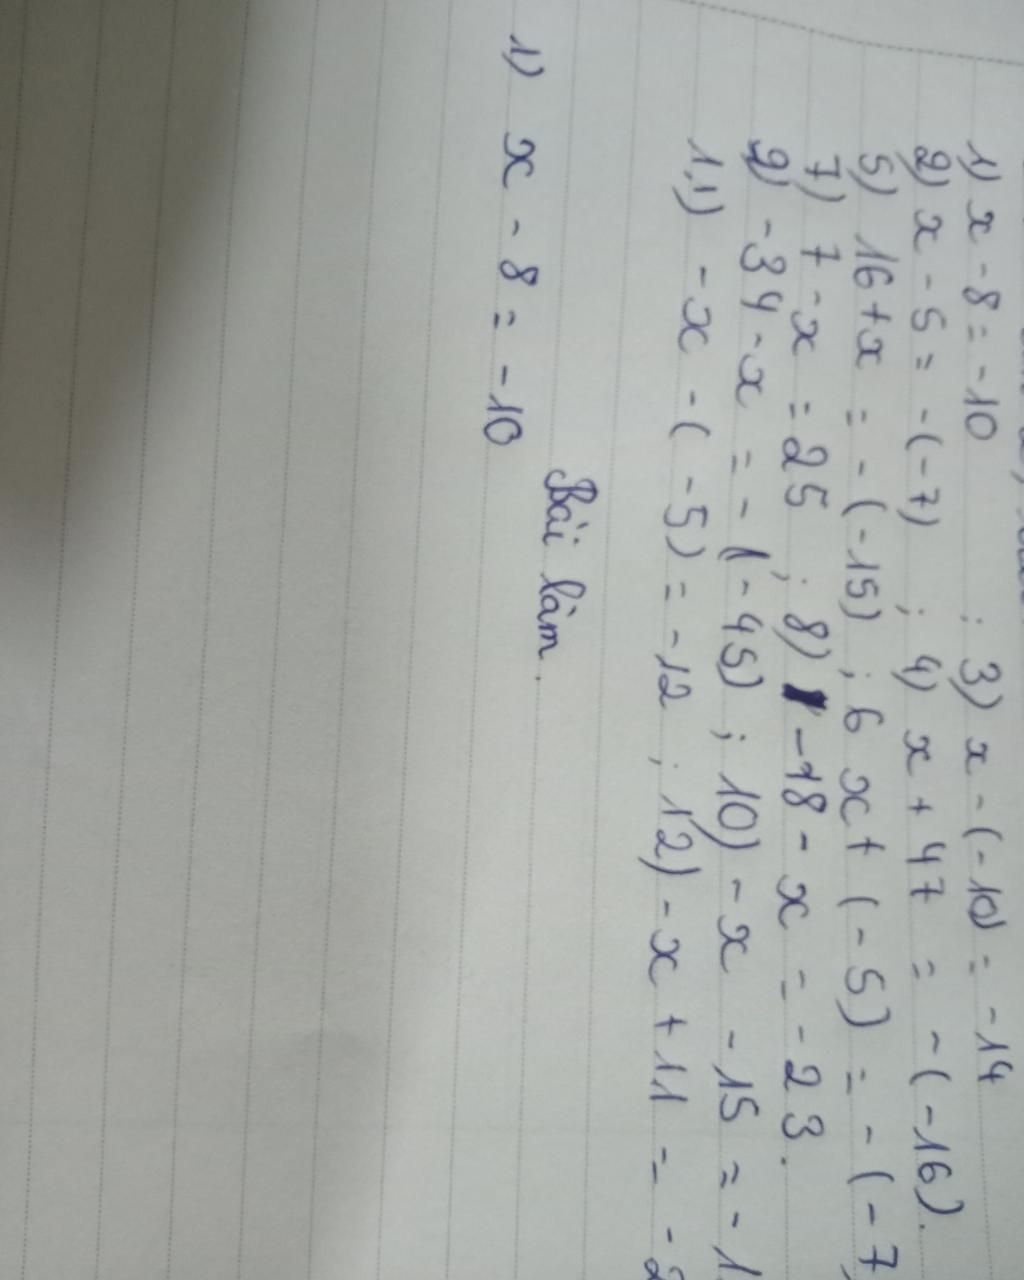 1) x - 8 = -10 ; 3) x - (-10) = -14
2) x - 5 = -(-7) ; 4) x + 47 = -(-16).
5) 16 + x = -(-15) ; 6 x + (-5) = -(-7
7) 7 - x = 25 ; 8) -18 - x = -23.
9) -34 - x = -(-45) ; 10) -x - 15 = -1
11) -x - (-5) = -12 ; 12) -x + 11 = -2
Bài làm.
1) x - 8 = -10